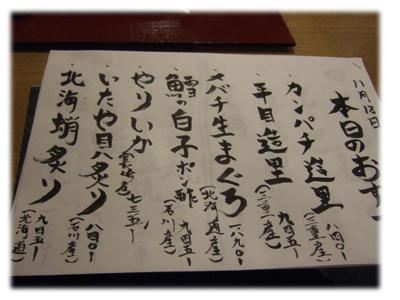 11月12日
本日のおす
・カンパチ造里 (三重産) 八四〇ー
・平目造里 (三重産) 九四五ー
・メバチ生まぐろ (北海道産) 一八九〇ー
・鱈の白子ポン酢 (石川産) 九四五ー
・やりいか 七三五ー
・いたや貝炙り (石川産) 八四〇ー
・北海蛸炙り (北海道) 九四五ー